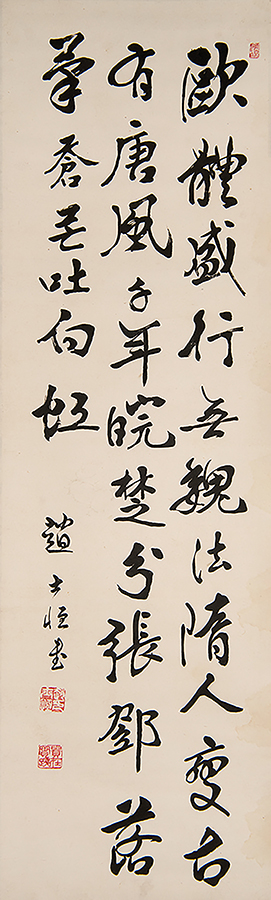 歐體盛行無魏法隋人變古
有唐風千年皖楚分張鄧落
筆蒼茫吐白虹
趙士恒書